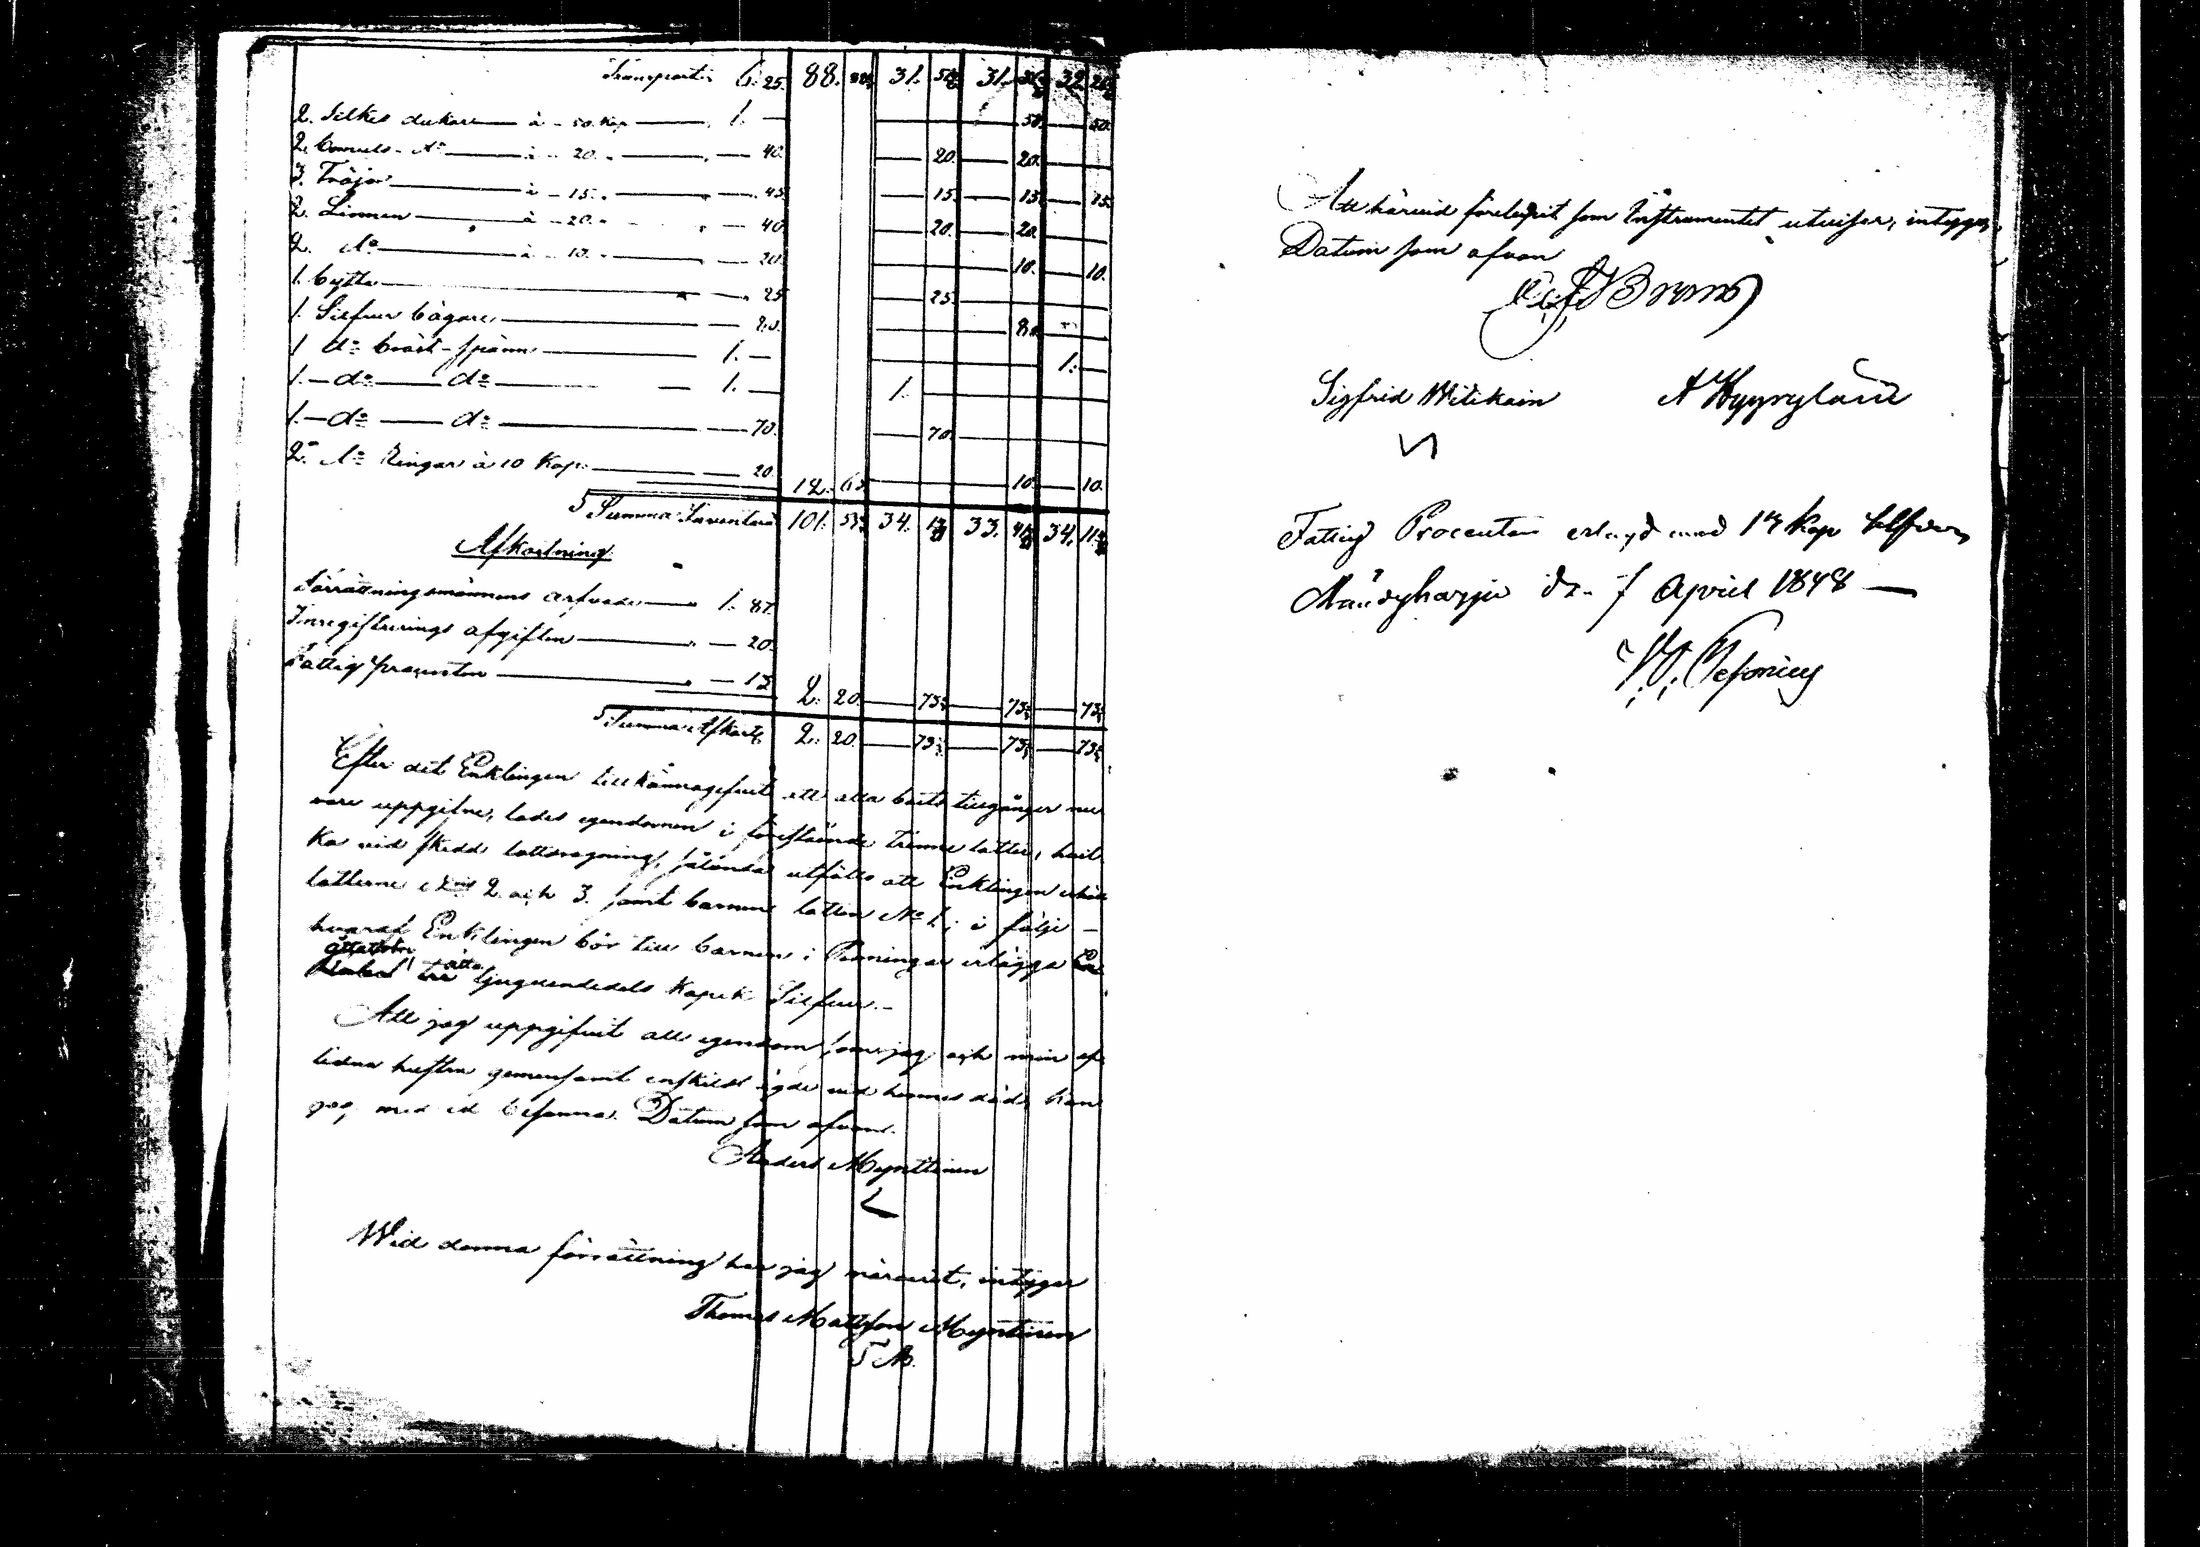 Transport 6. 25. 88. 31. 31. 32.
2. Silkes dukar à 50. Kop 1. — 50. 50.
2. Bomuls- do à 20. 40. 20. 20.
3. Tröjor à 15. 45. 15. 15. 15.
2. Linnen à 20. 40. 20. 20.
2. do à 10. 20. 10. 10.
1. bytta 25 25.
1. Silfver bägare 80. 80.
1 do bröst-spänne 1. — 1.
1. — do — do 1. — 1.
1. — do — do 70. 70.
2. do Ringar à 10 Kop. 20. 12. 65. 10. 10.
Summa Inventarii 101. 34. 33. 34.
Afkortning
Förrättningsmännens arfvode 1. 87.
Inregistrerings afgiften — 20.
Fattig procenten — 13. 2. 20. 73⅓ 73⅓ 73⅓
Summa Afkortn. 2. 20. 73⅓ 73⅓ 73⅓
Efter det Enklingen tillkännagifvit att alla boets tillgångar nu
voro uppgifne, lades egendomen i förestående trenne lotter, hvil
ka vid skedd lottdragning, sålunda utföllo att Enklingen erhöll
lotterne No 2 och 3. samt barnen lotten No 1; i följe —
hvaraf Enklingen bör till barnen i Penningar erlägga
åtta tjuguendedels Kopek Silfver. —
Att jag uppgifvit all egendom, som jag och min af
lidna hustru gemensamt enskildt ägde vid hennes död, kan
jag med ed besanna. Datum som ofvan.
Anders Mynttinen
Wid denna förrättning har jag närvarit, intygar
Thomas Mattsson Mynttinen
T. M.
Att härvid förelupit som Instrumentet utvisar, intyga,
Datum som ofvan
Sigfrid Witikain A Kyyrylain
Fattig Procenten erlagd med 14 Kop Silfver
Mändyharju d. 7 April 1848 —